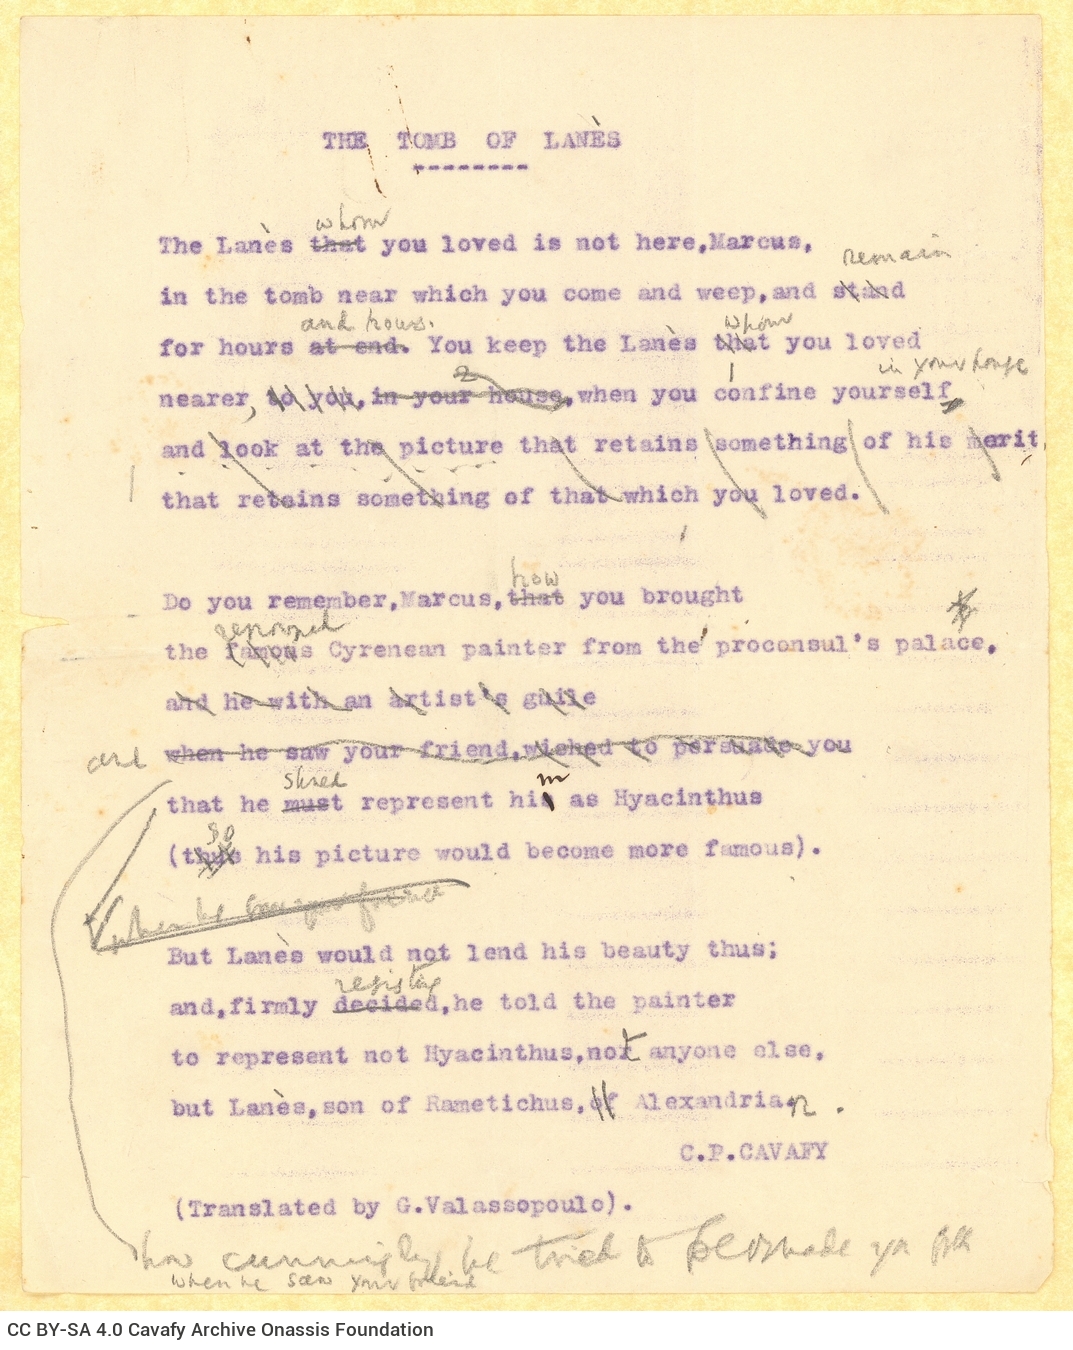 THE TOMB OF LANÈS
whom
The Lanès that you loved is not here,Marcus,
remain
in the tomb near which you come and weep,and stand
and hours. whom
for hours at end. You keep the Lanès that you loved
2 1 in your house
nearer, to you,in your house,when you confine yourself
and look at the picture that retains something of his merit,
that retains something of that which you loved.
how
Do you remember,Marcus,that you brought
renowned
the famous Cyrenean painter from the proconsul's palace.
and he with an artist's guile
and when he saw your friend,wished to persuade you
m
that he must represent his as Hyacinthus
so
(thus his picture would become more famous).
when he saw your friend
But Lanès would not lend his beauty thus;
resisting
and,firmly decided,he told the painter
to represent not Hyacinthus,not anyone else,
but Lanès,son of Rametichus,of Alexandria.n .
C.P.CAVAFY
(Translated by G.Valassopoulo).
how cunningly he tried to persuade you both
when he saw your friend
CC BY-SA 4.0 Cavafy Archive Onassis Foundation